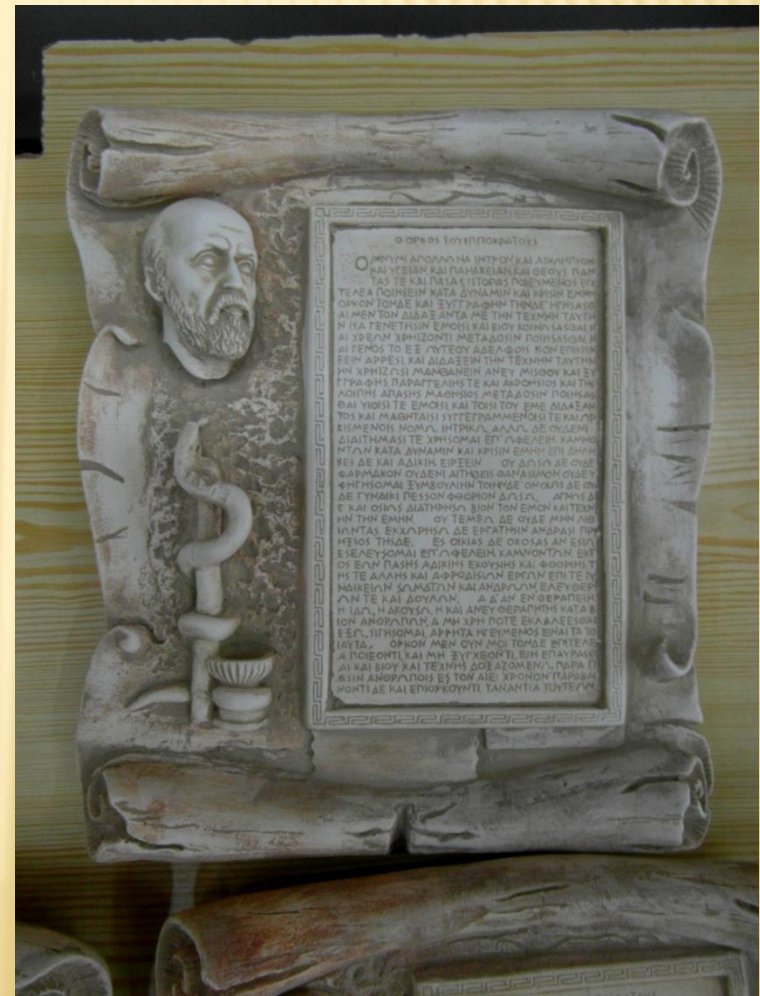 Ο ΟΡΚΟΣ ΤΟΥ ΙΠΠΟΚΡΑΤΟΥΣ
ΟΜΝΥΜΙ ΑΠΟΛΛΩΝΑ ΙΗΤΡΟΝ ΚΑΙ ΑΣΚΛΗΠΙΟΝ
ΚΑΙ ΥΓΕΙΑΝ ΚΑΙ ΠΑΝΑΚΕΙΑΝ ΚΑΙ ΘΕΟΥΣ ΠΑΝ
ΤΑΣ ΤΕ ΚΑΙ ΠΑΣΑΣ ΙΣΤΟΡΑΣ ΠΟΙΕΥΜΕΝΟΣ ΕΠΙ
ΤΕΛΕΑ ΠΟΙΗΣΕΙΝ ΚΑΤΑ ΔΥΝΑΜΙΝ ΚΑΙ ΚΡΙΣΙΝ ΕΜΗΝ
ΟΡΚΟΝ ΤΟΝΔΕ ΚΑΙ ΞΥΓΓΡΑΦΗΝ ΤΗΝΔΕ ΗΓΗΣΑΣΘ
ΑΙ ΜΕΝ ΤΟΝ ΔΙΔΑΞΑΝΤΑ ΜΕ ΤΗΝ ΤΕΧΝΗΝ ΤΑΥΤΗ
Ν ΙΣΑ ΓΕΝΕΤΗΣΙΝ ΕΜΟΙΣΙ ΚΑΙ ΒΙΟΥ ΚΟΙΝΩΣΑΣΘΑΙ Κ
ΑΙ ΧΡΕΩΝ ΧΡΗΙΖΟΝΤΙ ΜΕΤΑΔΟΣΙΝ ΠΟΙΗΣΑΣΘΑΙ Κ
ΑΙ ΓΕΝΟΣ ΤΟ ΕΞ ΩΥΤΕΟΥ ΑΔΕΛΦΟΙΣ ΙΣΟΝ ΕΠΙΚΡΙΝ
ΕΕΙΝ ΑΡΡΕΣΙ ΚΑΙ ΔΙΔΑΞΕΙΝ ΤΗΝ ΤΕΧΝΗΝ ΤΑΥΤΗΝ
ΗΝ ΧΡΗΙΖΩΣΙ ΜΑΝΘΑΝΕΙΝ ΑΝΕΥ ΜΙΣΘΟΥ ΚΑΙ ΞΥ
ΓΓΡΑΦΗΣ, ΠΑΡΑΓΓΕΛΙΗΣ ΤΕ ΚΑΙ ΑΚΡΟΗΣΙΟΣ ΚΑΙ ΤΗΣ
ΛΟΙΠΗΣ ΑΠΑΣΗΣ ΜΑΘΗΣΙΟΣ ΜΕΤΑΔΟΣΙΝ ΠΟΙΗΣΑΣ
ΘΑΙ ΥΙΟΙΣΙ ΤΕ ΕΜΟΙΣΙ ΚΑΙ ΤΟΙΣΙ ΤΟΥ ΕΜΕ ΔΙΔΑΞΑΝ
ΤΟΣ ΚΑΙ ΜΑΘΗΤΑΙΣΙ ΣΥΓΓΕΓΡΑΜΜΕΝΟΙΣΙ ΤΕ ΚΑΙ ΩΡ
ΚΙΣΜΕΝΟΙΣ ΝΟΜΩ, ΙΗΤΡΙΚΩ, ΑΛΛΩ ΔΕ ΟΥΔΕΝΙ
ΔΙΑΙΤΗΜΑΣΙ ΤΕ ΧΡΗΣΟΜΑΙ ΕΠ' ΩΦΕΛΕΙΗ ΚΑΜΝΟ
ΝΤΩΝ ΚΑΤΑ ΔΥΝΑΜΙΝ ΚΑΙ ΚΡΙΣΙΝ ΕΜΗΝ ΕΠΙ ΔΗΛΗ
ΣΕΙ ΔΕ ΚΑΙ ΑΔΙΚΙΗ ΕΙΡΞΕΙΝ ΟΥ ΔΩΣΩ ΔΕ ΟΥΔΕ
ΦΑΡΜΑΚΟΝ ΟΥΔΕΝΙ ΑΙΤΗΘΕΙΣ ΘΑΝΑΣΙΜΟΝ ΟΥΔΕ Υ
ΦΗΓΗΣΟΜΑΙ ΞΥΜΒΟΥΛΙΗΝ ΤΟΙΗΝΔΕ ΟΜΟΙΩΣ ΔΕ ΟΥ
ΔΕ ΓΥΝΑΙΚΙ ΠΕΣΣΟΝ ΦΘΟΡΙΟΝ ΔΩΣΩ, ΑΓΝΩΣ Δ
Ε ΚΑΙ ΟΣΙΩΣ ΔΙΑΤΗΡΗΣΩ ΒΙΟΝ ΤΟΝ ΕΜΟΝ ΚΑΙ ΤΕΧΝ
ΗΝ ΤΗΝ ΕΜΗΝ ΟΥ ΤΕΜΕΩ ΔΕ ΟΥΔΕ ΜΗΝ ΛΙΘ
ΙΩΝΤΑΣ, ΕΚΧΩΡΗΣΩ ΔΕ ΕΡΓΑΤΗΣΙΝ ΑΝΔΡΑΣΙ ΠΡ
ΗΞΙΟΣ ΤΗΣΔΕ, ΕΣ ΟΙΚΙΑΣ ΔΕ ΟΚΟΣΑΣ ΑΝ ΕΣΙΩ
ΕΣΕΛΕΥΣΟΜΑΙ ΕΠ' ΩΦΕΛΕΙΗ ΚΑΜΝΟΝΤΩΝ ΕΚΤ
ΟΣ ΕΩΝ ΠΑΣΗΣ ΑΔΙΚΙΗΣ ΕΚΟΥΣΙΗΣ ΚΑΙ ΦΘΟΡΙΗΣ, Τ
ΗΣ ΤΕ ΑΛΛΗΣ ΚΑΙ ΑΦΡΟΔΙΣΙΩΝ ΕΡΓΩΝ ΕΠΙ ΤΕ ΓΥ
ΝΑΙΚΕΙΩΝ ΣΩΜΑΤΩΝ ΚΑΙ ΑΝΔΡΩΩΝ, ΕΛΕΥΘΕΡ
ΩΝ ΤΕ ΚΑΙ ΔΟΥΛΩΝ, Α Δ' ΑΝ ΕΝ ΘΕΡΑΠΕΙΗ
Η ΙΔΩ, Η ΑΚΟΥΣΩ, Η ΚΑΙ ΑΝΕΥ ΘΕΡΑΠΗΙΗΣ ΚΑΤΑ Β
ΙΟΝ ΑΝΘΡΩΠΩΝ, Α ΜΗ ΧΡΗ ΠΟΤΕ ΕΚΛΑΛΕΕΣΘΑΙ
ΕΞΩ, ΣΙΓΗΣΟΜΑΙ, ΑΡΡΗΤΑ ΗΓΕΥΜΕΝΟΣ ΕΙΝΑΙ ΤΑ ΤΟ
ΙΑΥΤΑ, ΟΡΚΟΝ ΜΕΝ ΟΥΝ ΜΟΙ ΤΟΝΔΕ ΕΠΙΤΕΛΕ
Α ΠΟΙΕΟΝΤΙ, ΚΑΙ ΜΗ ΞΥΓΧΕΟΝΤΙ, ΕΙΗ ΕΠΑΥΡΑΣΘ
ΑΙ ΚΑΙ ΒΙΟΥ ΚΑΙ ΤΕΧΝΗΣ ΔΟΞΑΖΟΜΕΝΩ, ΠΑΡΑ Π
ΑΣΙΝ ΑΝΘΡΩΠΟΙΣ ΕΣ ΤΟΝ ΑΙΕΙ ΧΡΟΝΟΝ ΠΑΡΑΒΑΙ
ΝΟΝΤΙ ΔΕ ΚΑΙ ΕΠΙΟΡΚΟΥΝΤΙ, ΤΑΝΑΝΤΙΑ ΤΟΥΤΕΩΝ